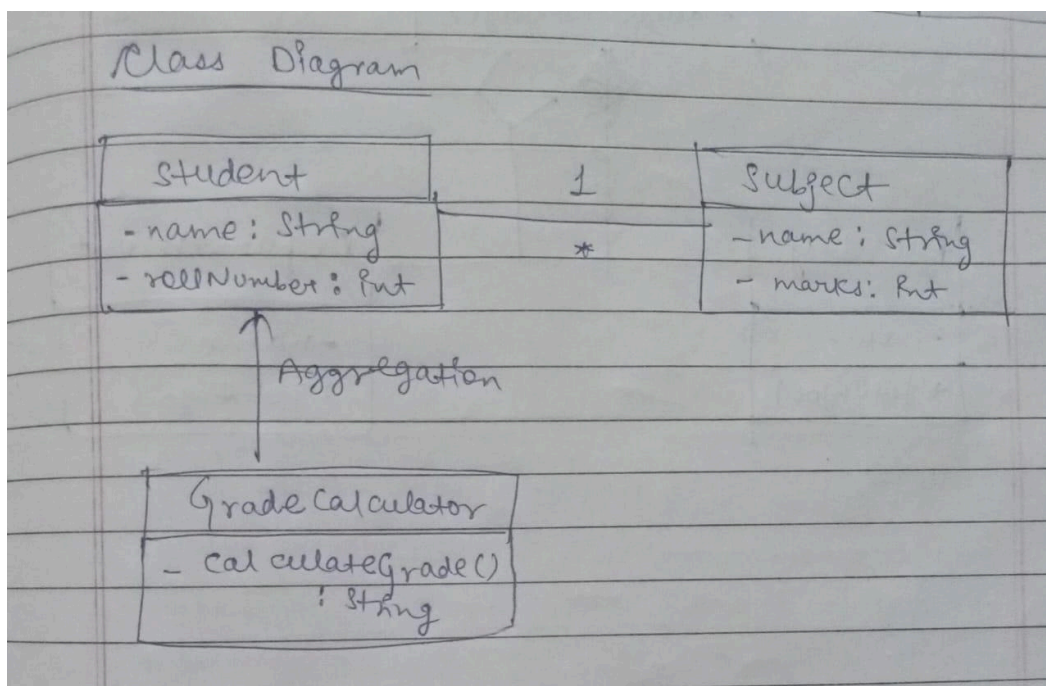 Class Diagram
Student
- name: String
- rollNumber: int
1
*
Subject
- name: String
- marks: int
Aggregation
GradeCalculator
- calculateGrade()
: String